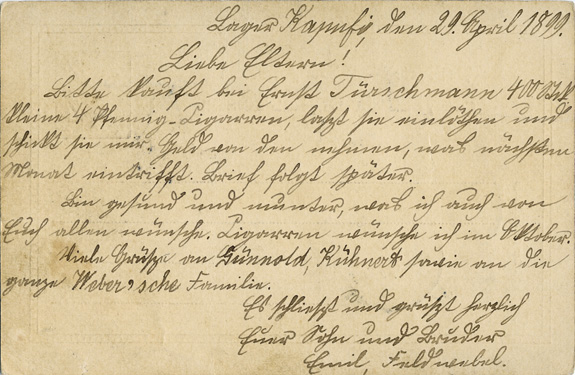 Lager Kapufi, den 29. April 1899.
Liebe Eltern!
Bitte kauft bei Ernst Türschmann 400 Stck
kleine 4 Pfennig-Cigarren, laszt sie einlöthen und
schickt sie mir. Geld von den nehmen, was nächsten
Monat eintrifft. Brief folgt später.
Bin gesund und munter, was ich auch von
Euch allen wünsche. Cigarren wünsche ich im Oktober.
Viele Grüsze an Günnold, Kühnert sowie an die
ganze Weber'sche Familie.
Es schlieszt und grüszt herzlich
Euer Sohn und Bruder
Emil, Feldwebel.